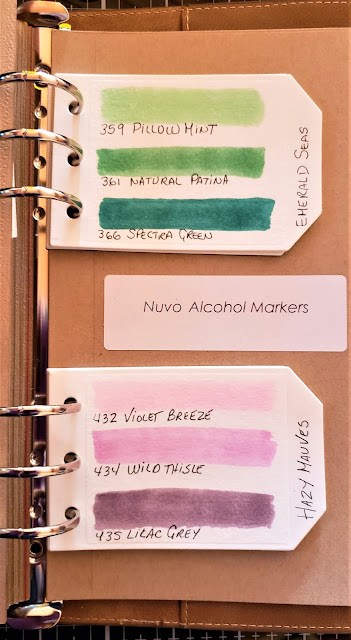 359 PILLOW MINT
361 NATURAL PATINA
366 SPECTRA GREEN
EMERALD SEAS
Nuvo Alcohol Markers
432 VIOLET BREEZE
434 WILD THISLE
435 LILAC GREY
HAZY MAUVES